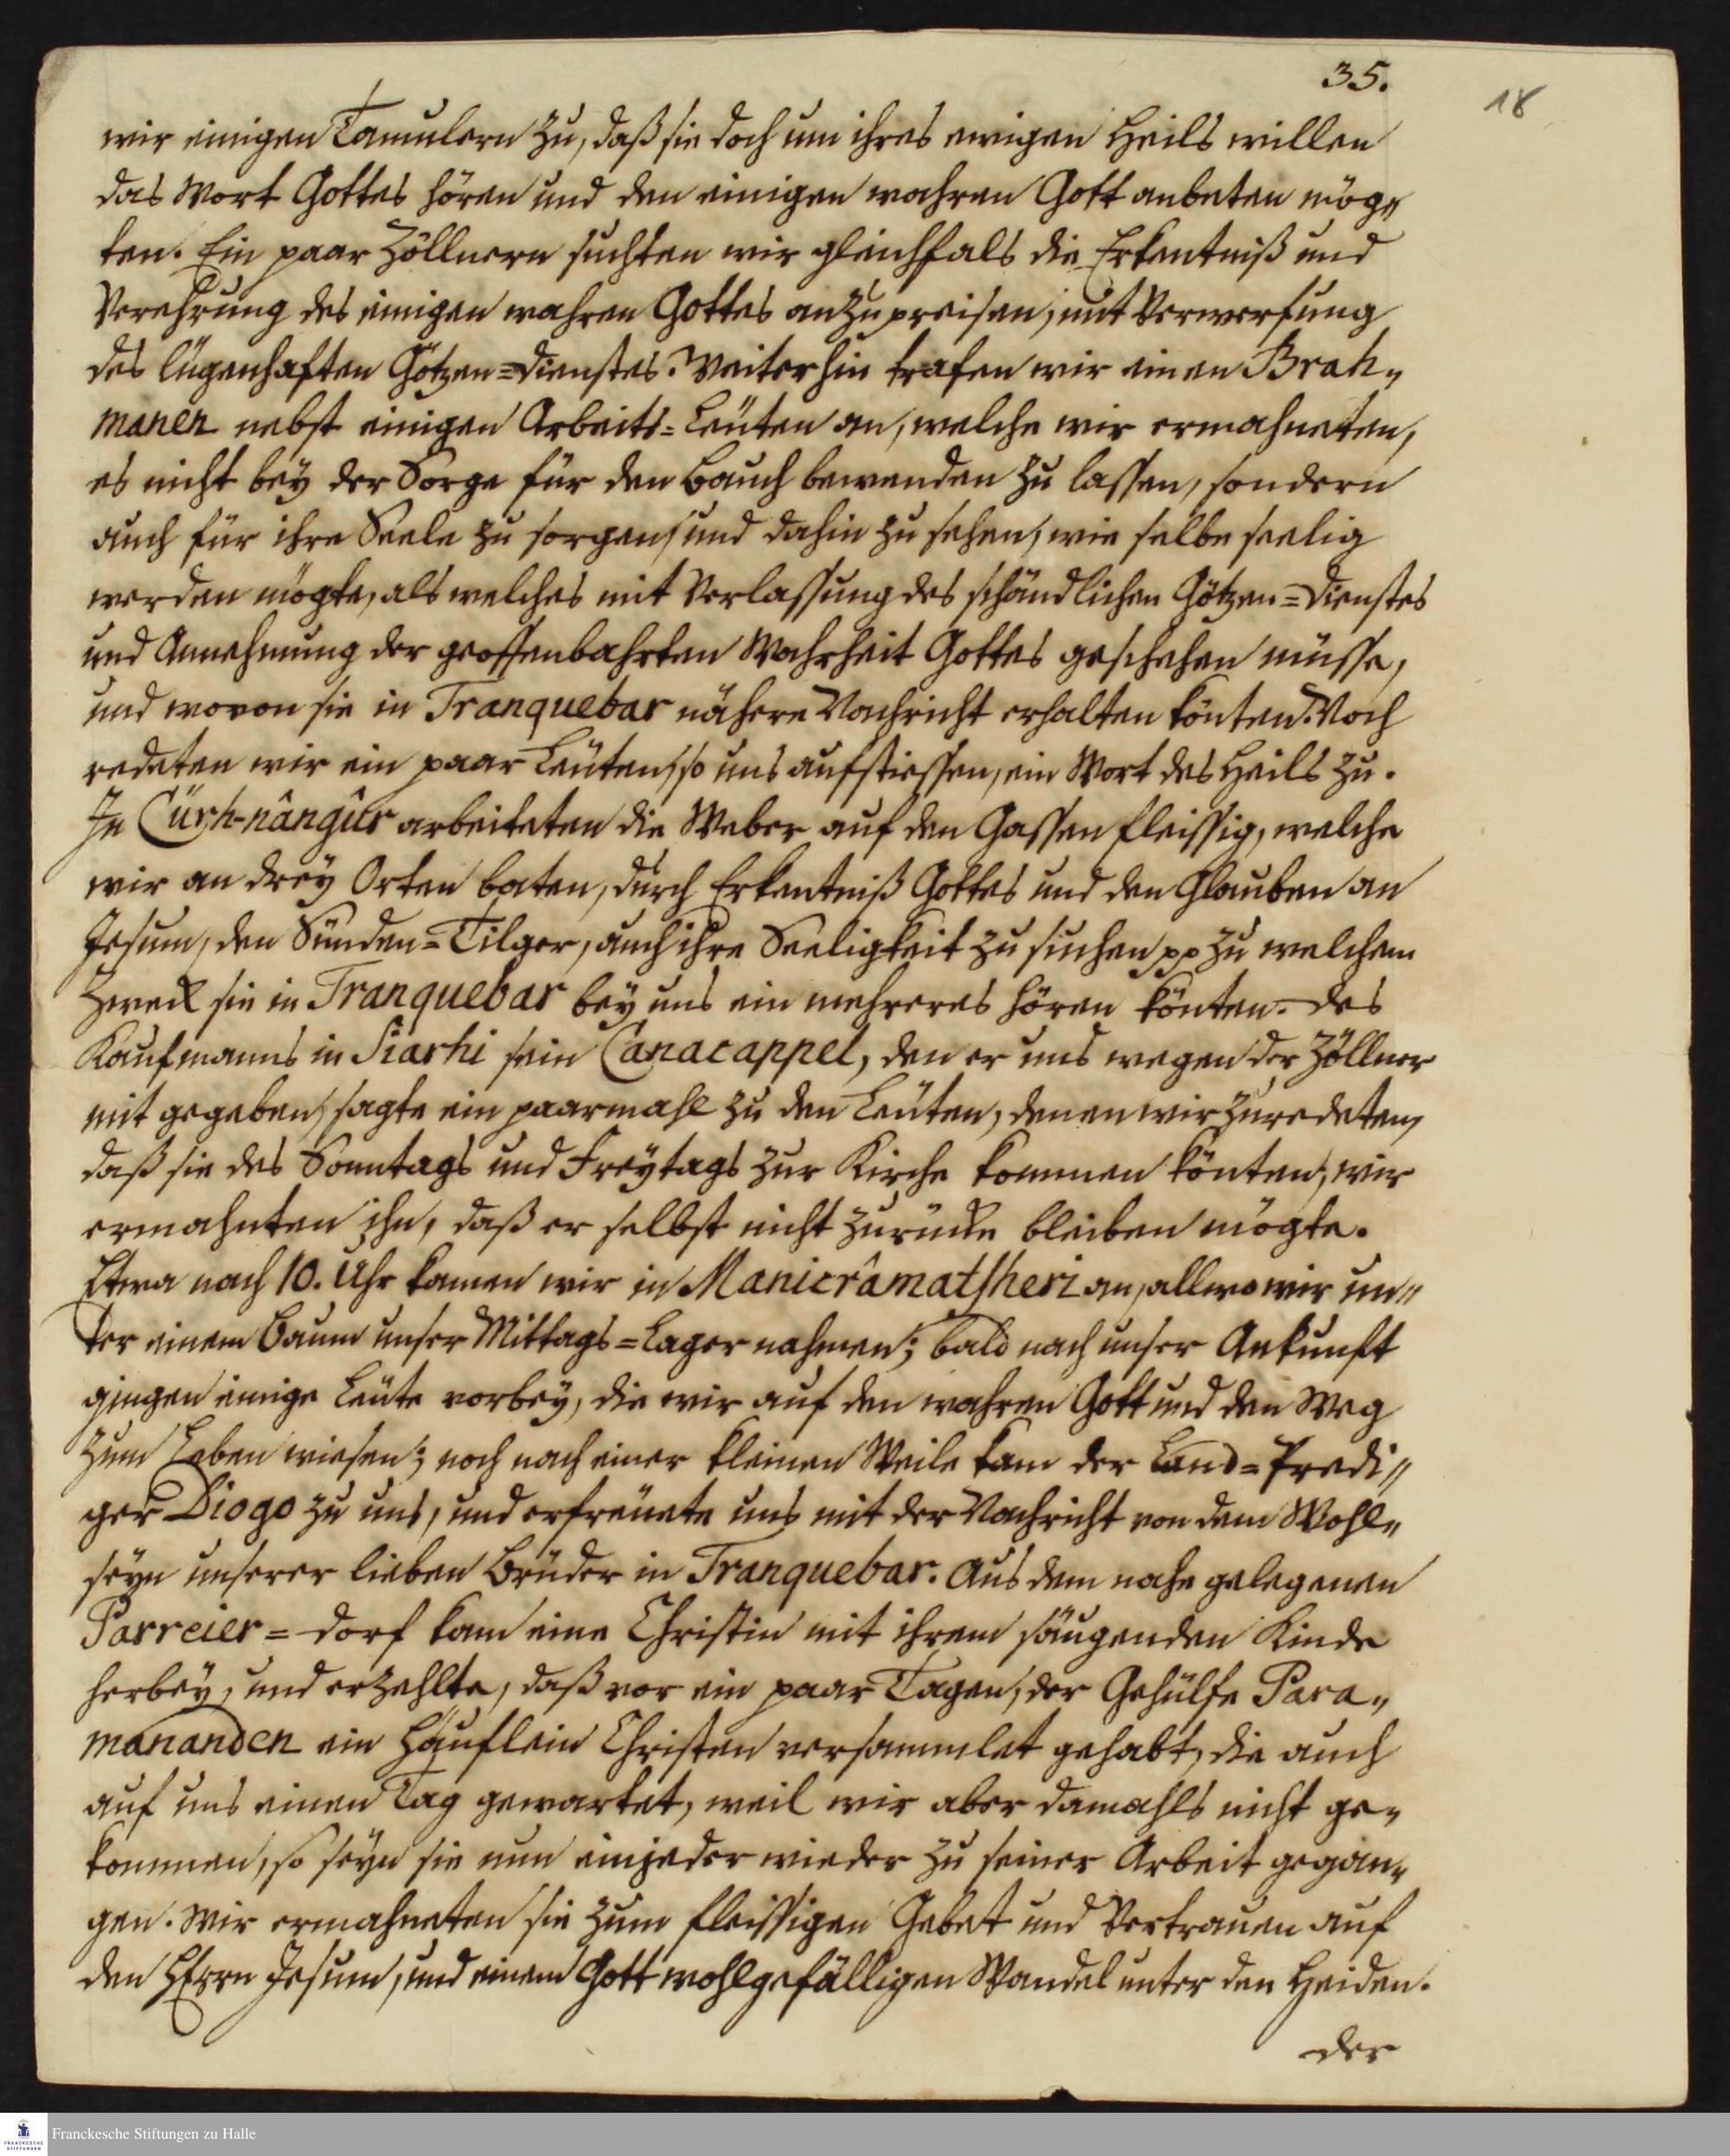 35.
18
wir einigen Tamulern zu, daß sie doch um ihres ewigen Heils willen
das Wort Gottes hören und den einigen wahren Gott anbeten mög„
ten. Ein paar Zöllnern suchten wir gleichfals die Erkentniß und
Verehrung des einigen wahren Gottes anzupreisen, mit Verwerfung
des lügenhaften Götzen=Dienstes. Weiterhin trafen wir einen Brah„
maner nebst einigen Arbeits=Leüten an, welche wir ermahneten,
es nicht bey der Sorge für den Bauch bewenden zu lassen, sondern
auch für ihre Seele zu sorgen, und dahin zu sehen, wie selbe seelig
werden mögte, als welches mit Verlassung des schändlichen Götzen=Dienstes
und Annehmung der geoffenbahrten Wahrheit Gottes geschehen müsse,
und wovon sie in Tranquebar nähere Nachricht erhalten könten. Noch
redeten wir ein paar Leüten, so uns aufstiessen, ein Wort des Heils zu.
In Cürh-nângûr arbeiteten die Weber auf den Gassen fleissig, welche
wir an drey Orten baten, durch Erkentniß Gottes und den Glauben an
Jesum, den Sünden=Tilger, auch ihre Seeligkeit zu suchen pp zu welchem
Zweck sie in Tranquebar bey uns ein mehreres hören könten. Des
Kaufmanns in Siarhi sein Canacappel, den er uns wegen der Zöllner
mit gegeben, sagte ein paarmahl zu den Leüten, denen wir zuredeten,
daß sie des Sonntags und Freytags zur Kirche kommen könten, wir
ermahnten ihn, daß er selbst nicht zurücke bleiben mögte.
Etwa nach 10. Uhr kamen wir in Manicrâmatsheri an, allwo wir un„
ter einem Baum unser Mittags=Lager nahmen; bald nach unser Ankunft
gingen einige Leüte vorbey, die wir auf den wahren Gott und den Weg
zum Leben wiesen; noch nach einer kleinen Weile kam der Land=Predi„
ger Diogo zu uns, und erfreüete uns mit der Nachricht von dem Wohl„
seyn unserer lieben Brüder in Tranquebar. Aus dem nahe gelegenen
Parreier=dorf kam eine Christin mit ihrem säugenden Kinde
herbey, und erzehlte, daß vor ein paar Tagen, der Gehülfe Para„
mananden ein Häuflein Christen versammlet gehabt, die auch
auf uns einen Tag gewartet, weil wir aber damahls nicht ge„
kommen, so seyn sie nun ein jeder wieder zu seiner Arbeit gegan„
gen. Wir ermahneten sie zum fleissigen Gebet und Vertrauen auf
den HErrn Jesum, und einem Gott wohlgefälligen Wandel unter den Heiden.
der
Franckesche Stiftungen zu Halle